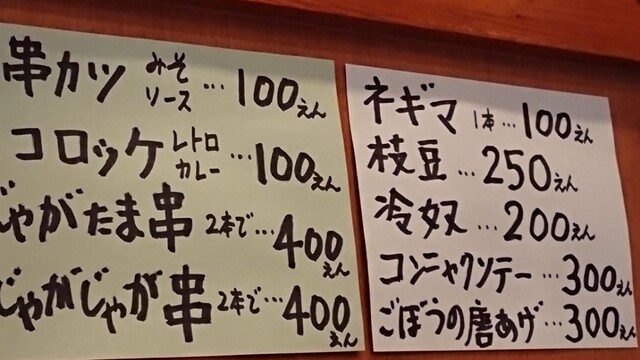 串カツ みそ ソース…100えん
コロッケ レトロ カレー…100えん
じゃがたま串 2本で…400えん
じゃがじゃが串 2本で…400えん
ネギマ 1本…100えん
枝豆…250えん
冷奴…200えん
コンニャクソテー…300えん
ごぼうの唐あげ…300えん